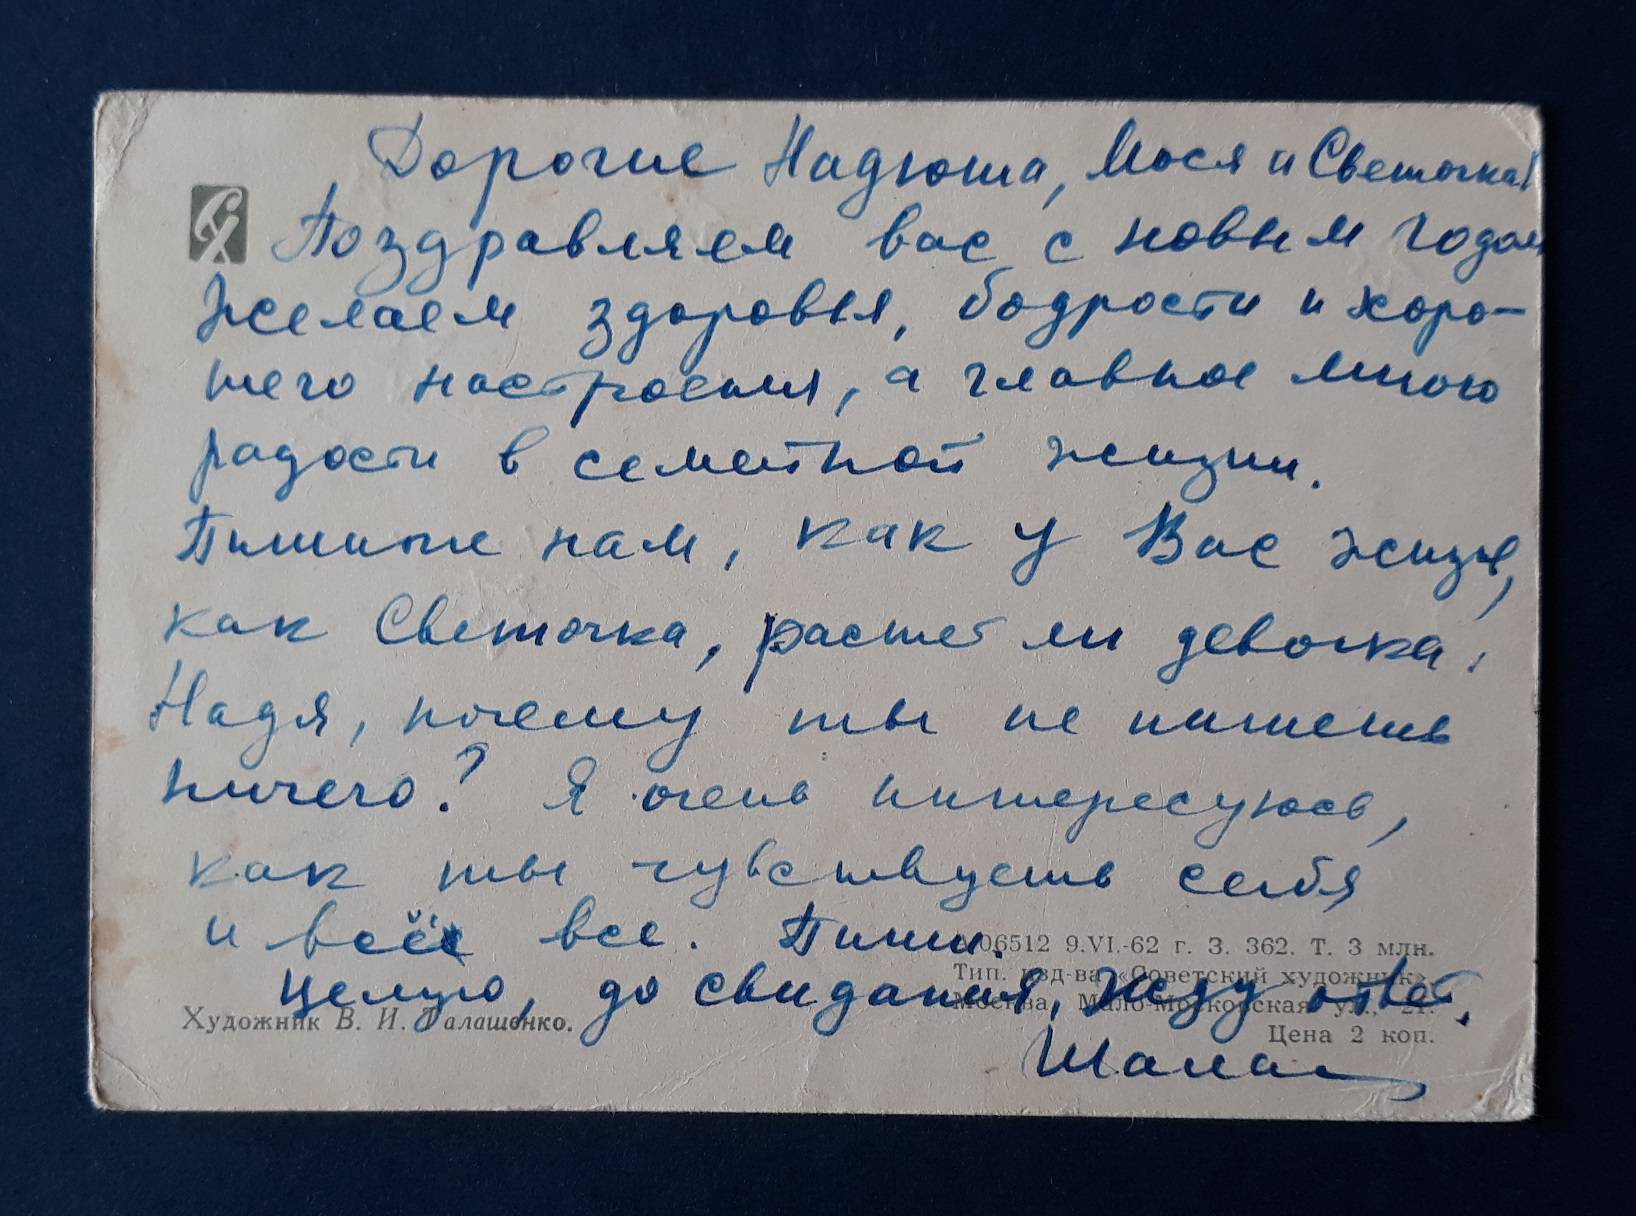 Дорогие Надюша, Мося и Светочка!
Поздравляем вас с новым годом
Желаем здоровья, бодрости и хоро-
шего настроения, а главное много
радости в семейной жизни.
Пишите нам, как у Вас жизнь,
как Светочка, растет ли девочка.
Надя, почему ты не пишешь
ничего? Я очень интересуюсь,
как ты чувствуешь себя
и всё все. Пиши.
06512 9.VI.-62 г. З. 362. Т. 3 млн.
Тип. изд-ва «Советский художник».
Целую, до свидания, жду ответ.
Москва, Мало-Московская ул., 21.
Художник В. И. Галашенко.
Цена 2 коп.